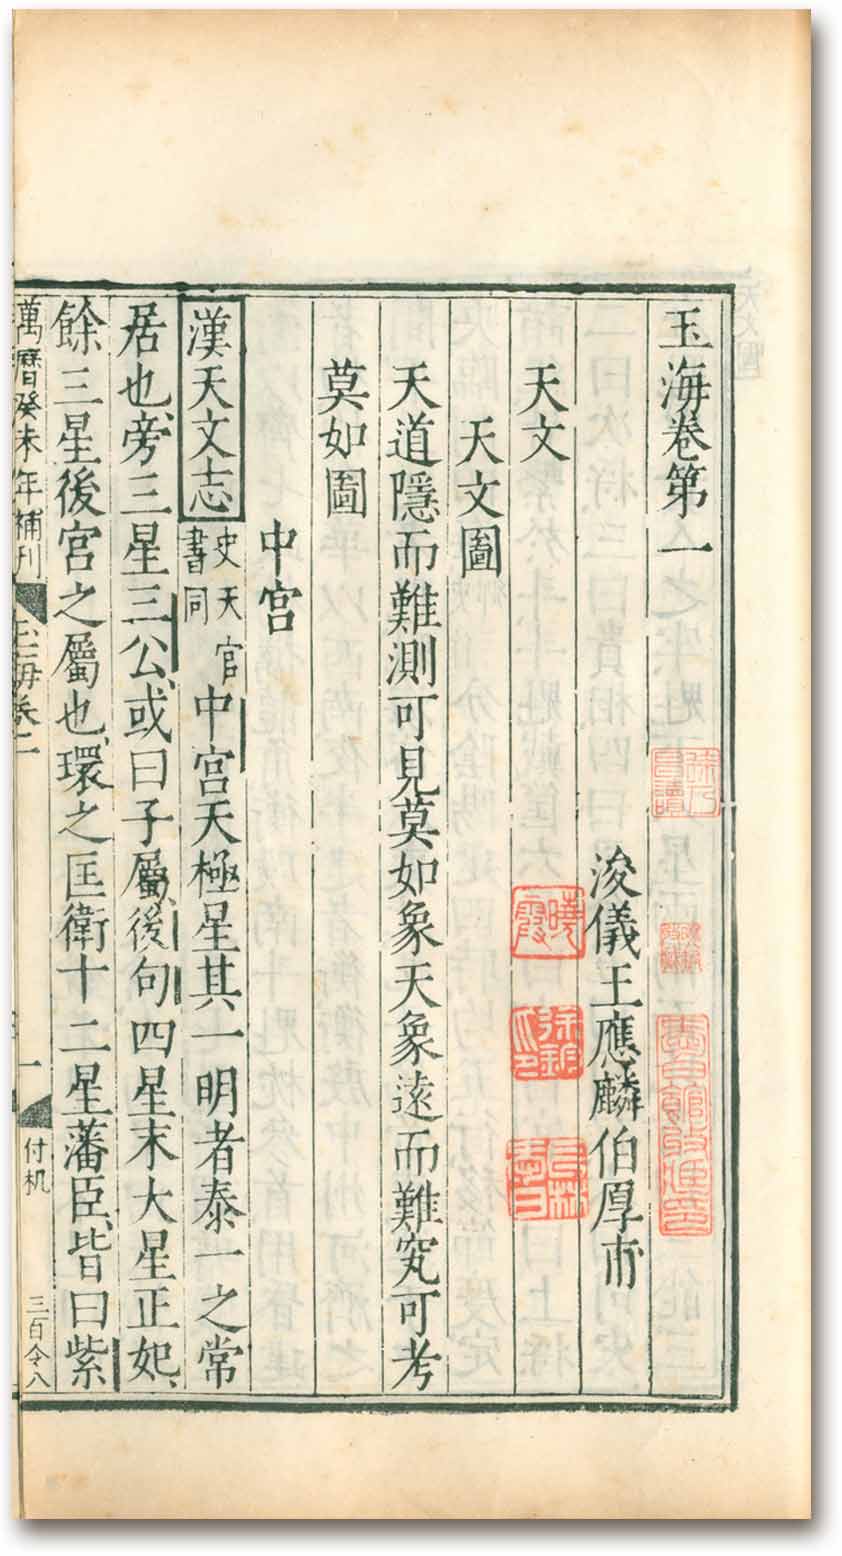 玉海卷第一
浚儀王應麟伯厚甫
天文
天文圖
天道隱而難測可見莫如象天象遠而難究可考
莫如圖
中宮
漢天文志史天官書同中宮天極星其一明者泰一之常
居也旁三星三公或曰子屬後句四星末大星正妃
餘三星後宮之屬也環之匡衛十二星藩臣皆曰紫
萬曆癸未年補刊 玉海卷一 一 付机 三百令八
曉霞
徐鈞印